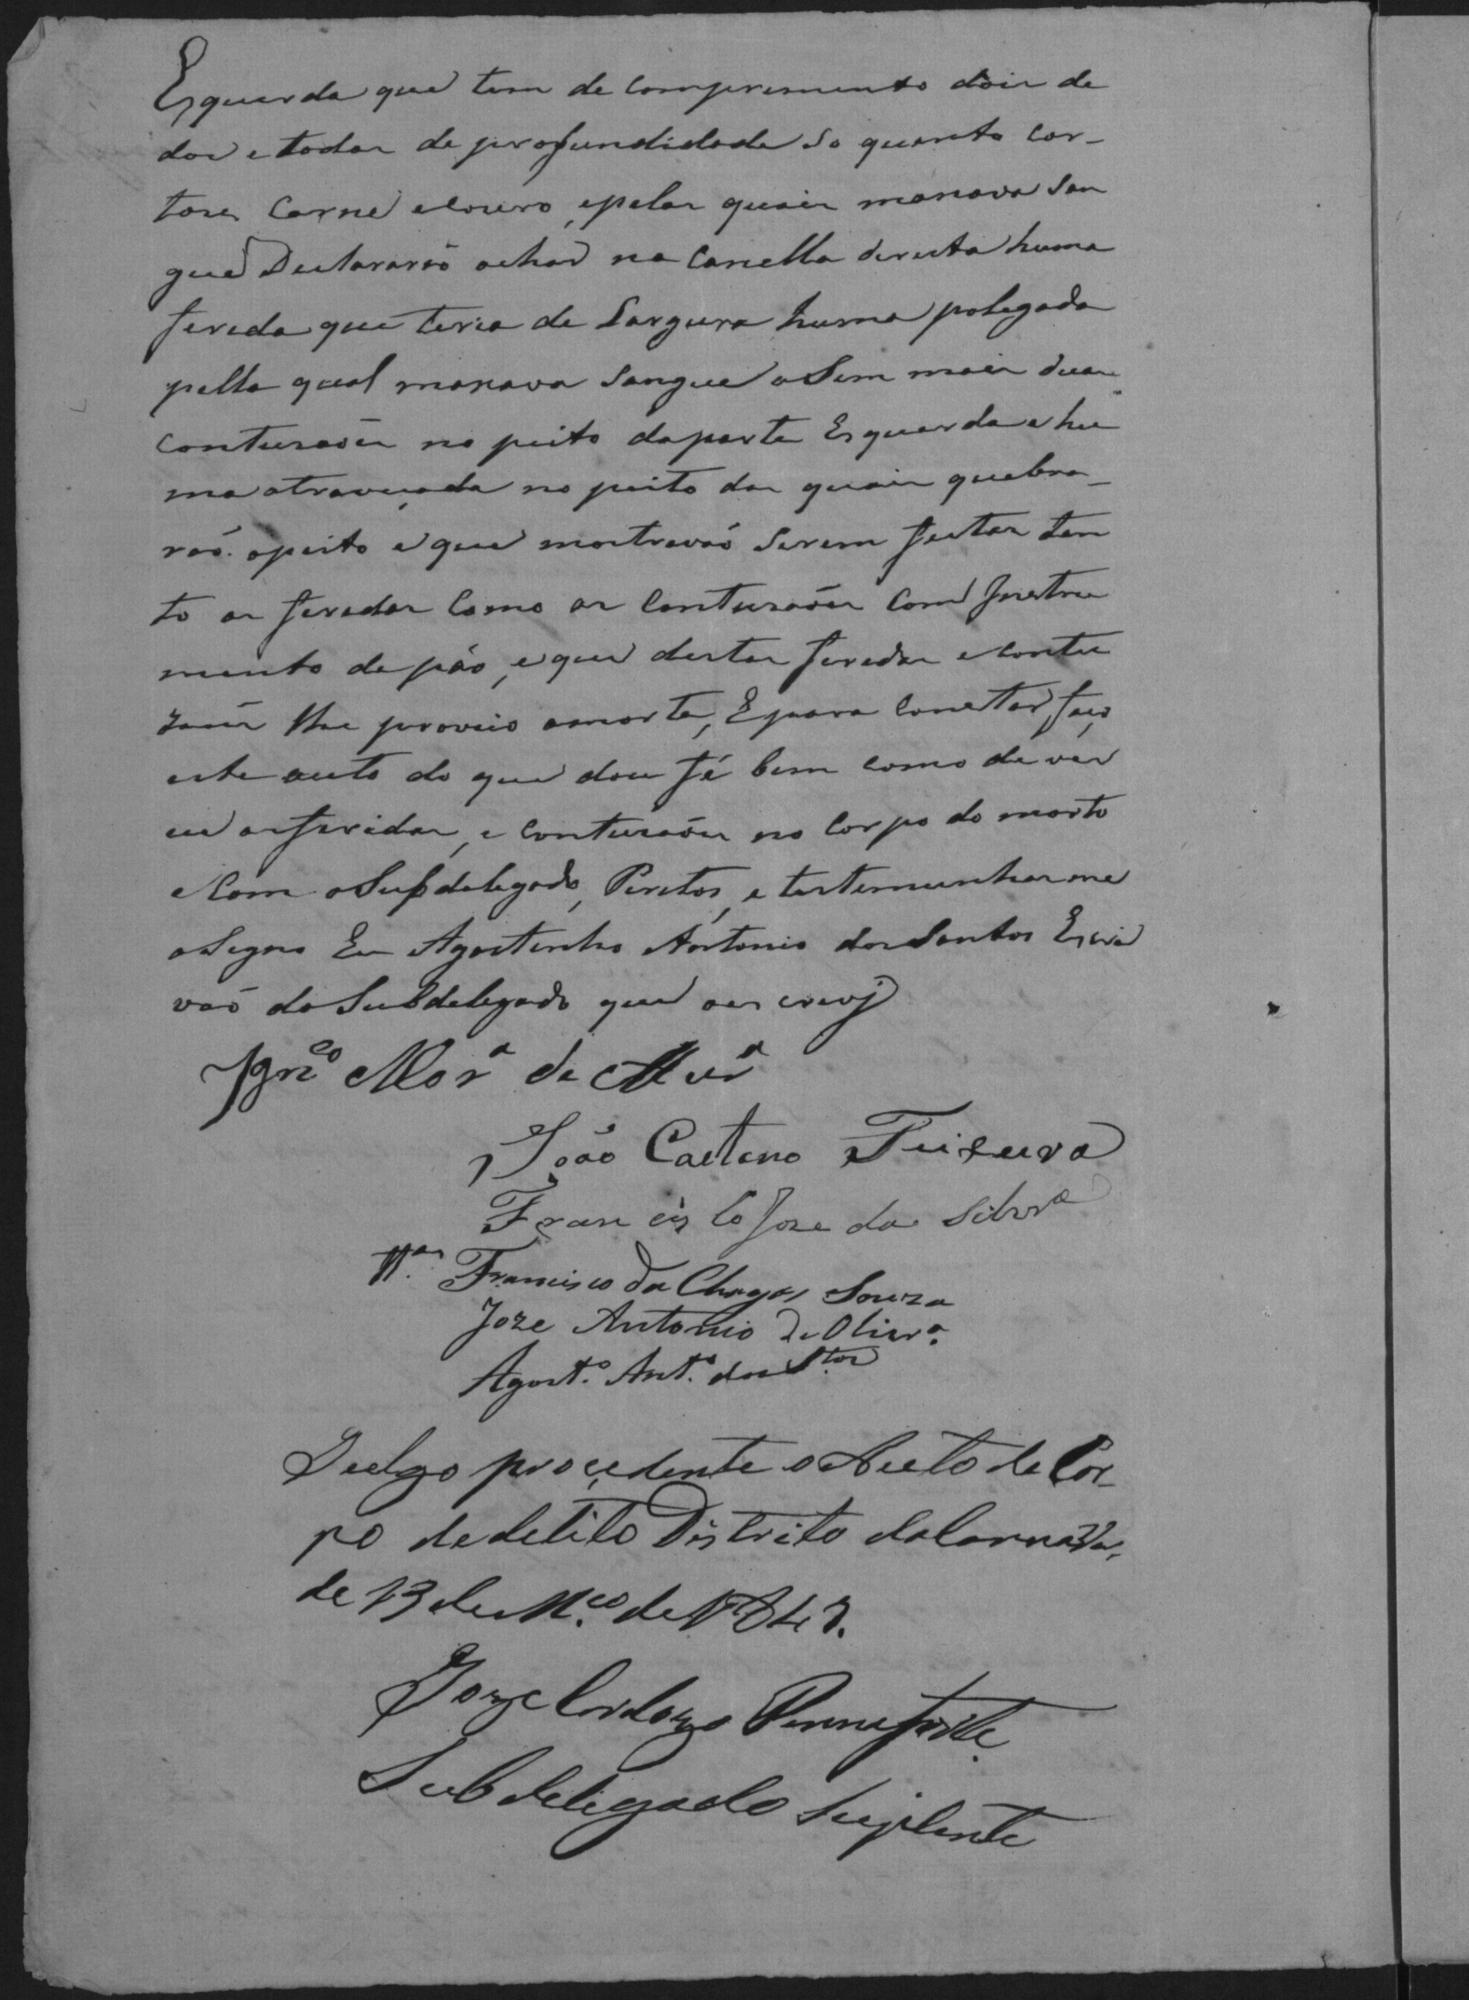 Esquerda que tem de comprimento dois de
dos e todas de profundidade so quanto cor-
tose carne e couro, e pelas quais manava San
gue Declararaó achar na Canella direita huma
ferida que teria de Largura huma polegada
pella qual manava Sangue aSim mais duas
contusoẽs no peito da parte Esquerda e hu
ma atraveçada no peito das quais quebra-
raó o peito e que mostravaó Serem feitas tan
to as feridas Como as Contusoẽs Com Instru
mento de páo, e que destas feridas e contu
zoẽs lhe proveio a morte, E para Constar faço
este auto do que dou fé bem como de ver
eu as feridas, e contusoẽs no Corpo do morto
e Com o Subdelegado, Peritos, e testemunhas me
aSigno Eu Agostinho Antonio dos Santos Escri
vaó do Subdelegado que o escrevj
Ign.co Mor.a de
João Caetano Teixeira
Francisco Joze da Silvra
TT.as Francisco das Chagas Souza
Joze Antonio de Olivr.a
Agost.o Ant.o dos S.tos
Julgo proçedente o Auto de Cor-
po de delito Districto da
de 13 de M.ço de 184
Joze Cardozo Pennaforte
Subdelegado Suplente